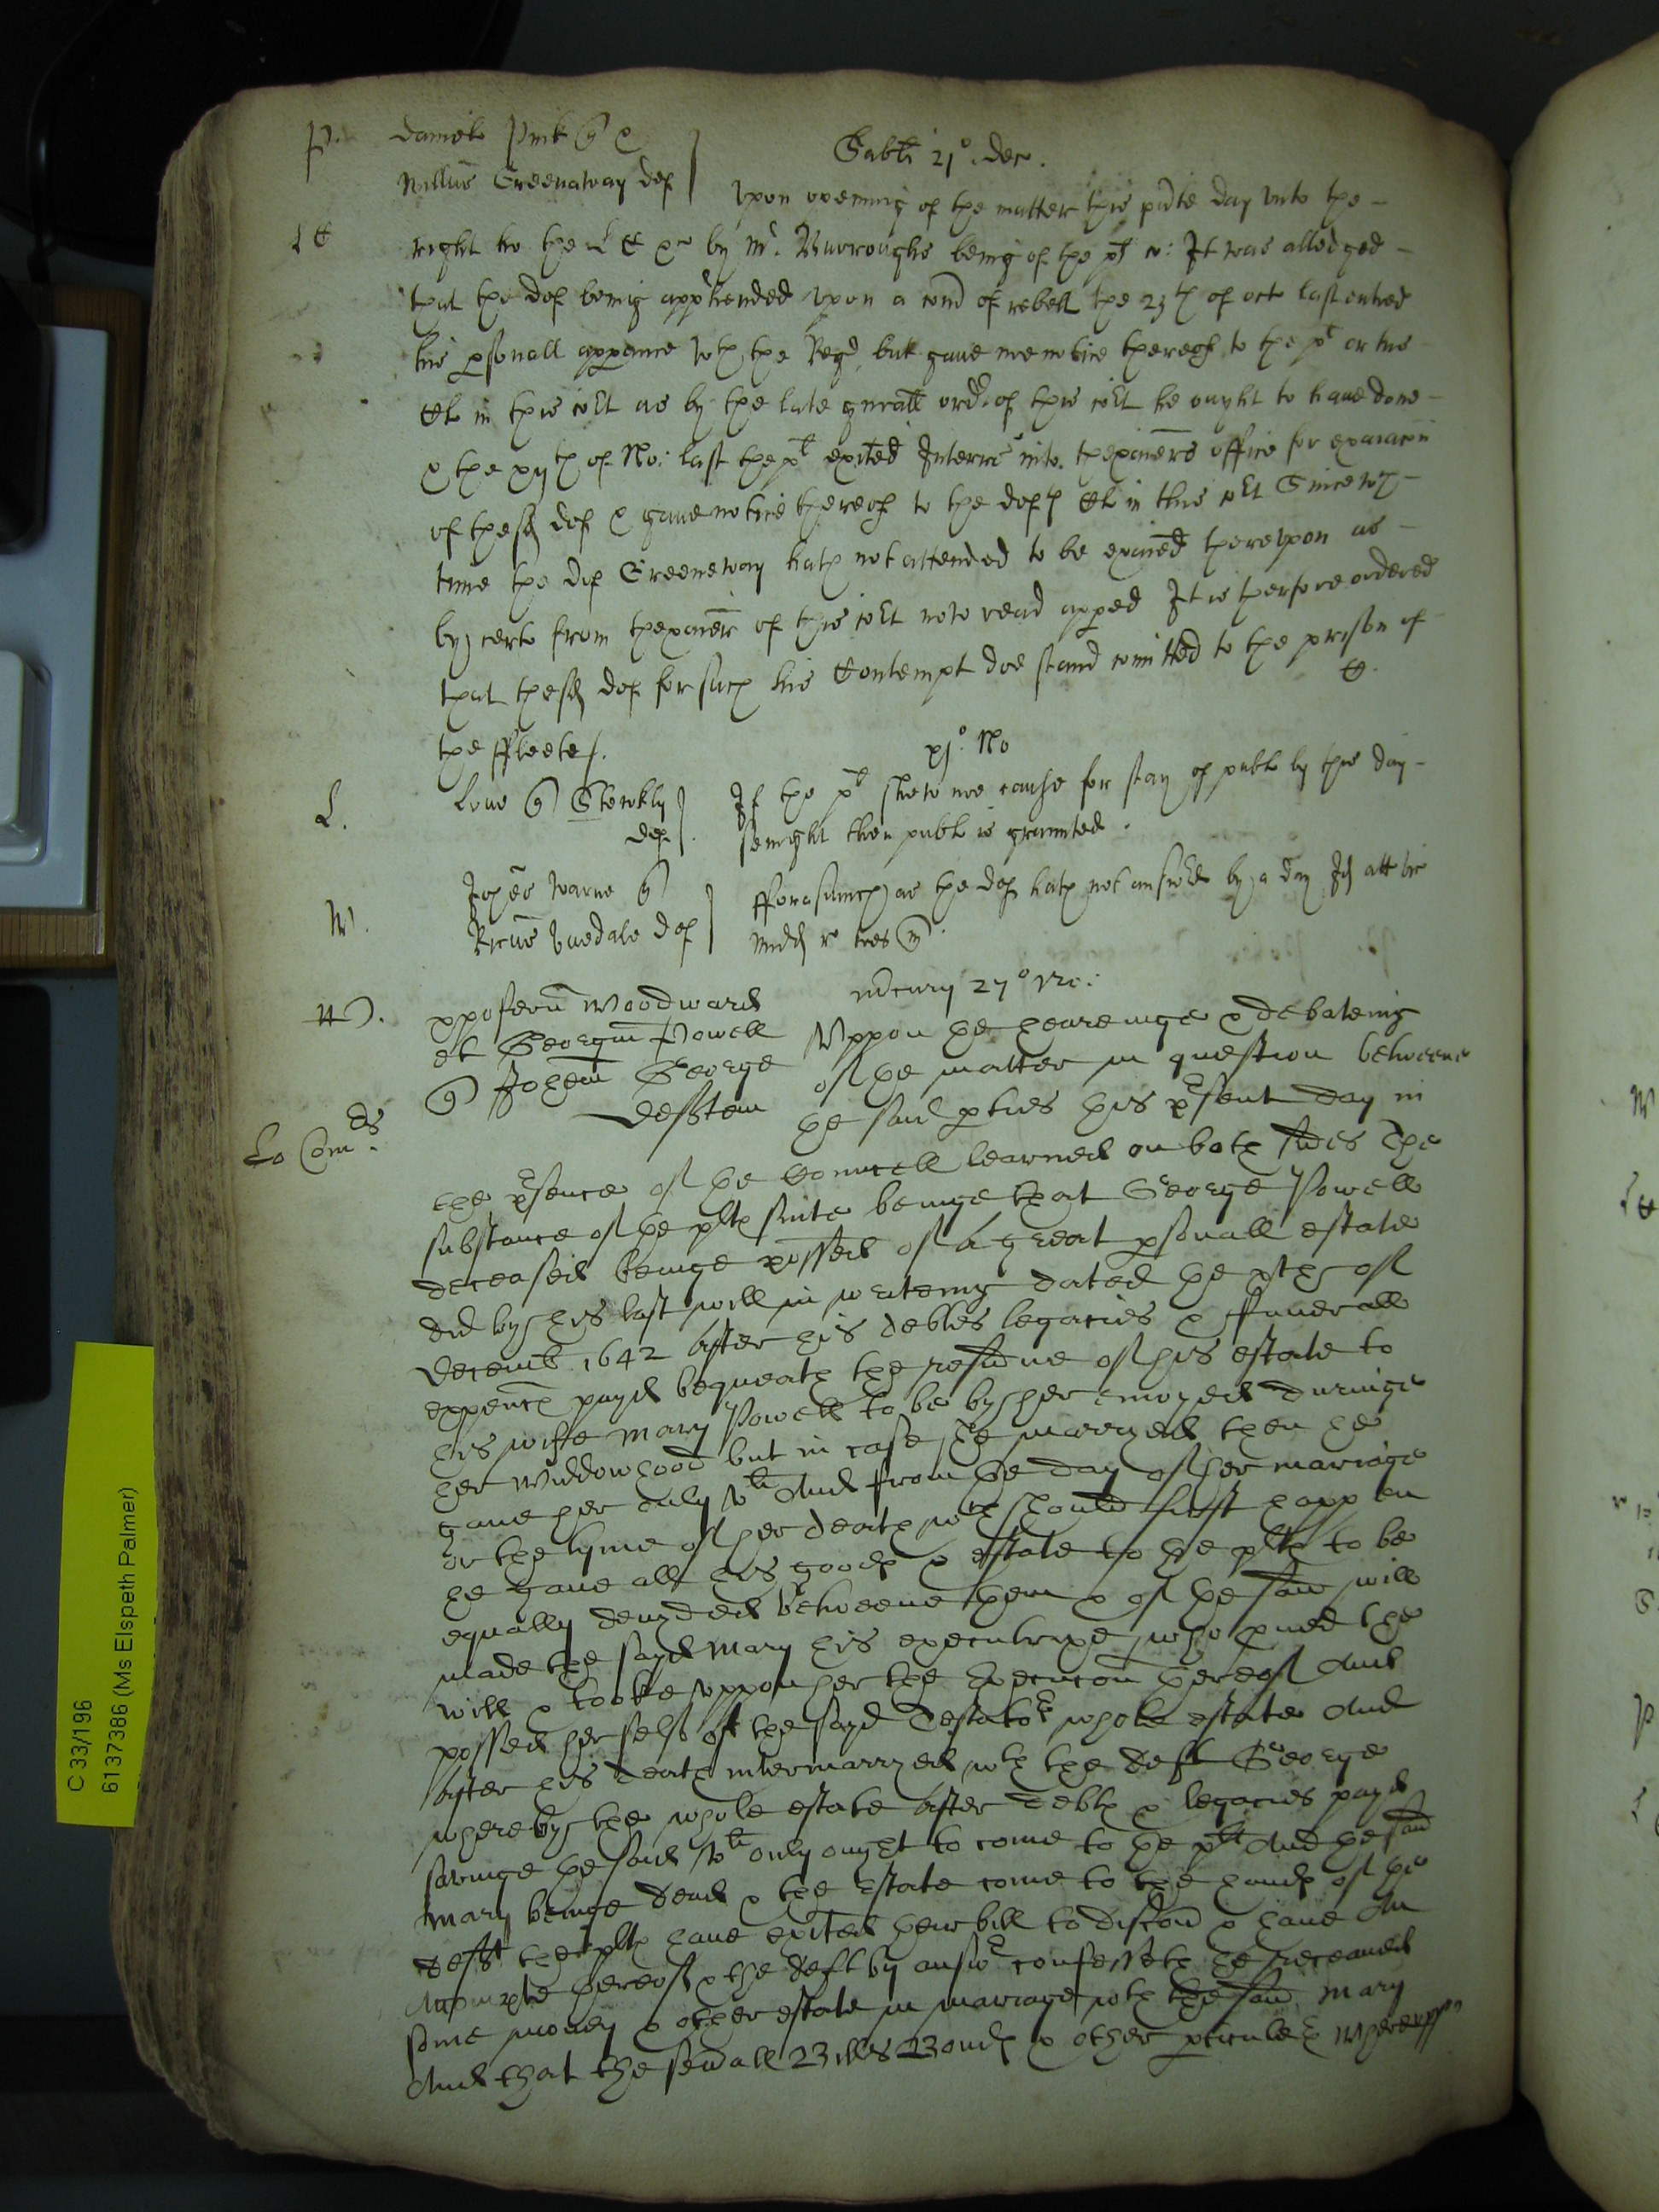 P. Daniele Pink q &
Willus Greenaway def
Sabti 21° Dec.
Upon opening of the matter this pnte day unto the
L C right ho: the L C &c by Mr. Burroughs being of the pl co: It was alledged
that the def being apprhended upon a comd of rebell the 23th of oct last entred
his psonall apparance wth the Regr, but gave noe notice thereof to the plt or his
Cl in this cort as by the late gnrall ordr of this cort he ought to have done
& the xijth of No: last the plt exited Interrs into thexaiers office for exaiacon
of the sd def & gave notice thereof to the defs Cl in this cort Since wch
time the def Greeneway hath not attended to be exaied thereupon as
by certe from thexaier of this cort now read appeed It is therfore ordered
that the sd def for such his Contempt doe stand comitted to the prison of
the ffleete/.
xj° No
L. Love q Stewkly
def
If the plt shew noe cause for stay of publ by this day
senight then publ is graunted.
W. Johes Warne q
Ricus Uvedale def
fforasmuch as the def hath not answd by a day
mercury 27° No:
W. Xpoferu Woodward
et Georgiu Powell
q Johem George
Defftem
Uppon the heareinge & debateing
of the matter in question betweene
the said pties this psent day in
Lo Comrs
the psence of the Councell learned on both sides The
substance of the plts suite beinge that George Powell
deceased beinge possed of a great psonall estate
did by his last will in writeing dated the xth of
Decemb 1642 after his debtes legacies & ffunerall
expences payd bequeath the residue of his estate to
his wiffe Mary Powell to be by her enioyed duringe
her Widdowhood but in case she marryed then he
gave her only vli And from the day of her mariage
or the tyme of her death wch should first happen
he gave all his goods & estate to the plts to be
equally devyded betweene them & of the said will
made the sayd Mary his executrixe who pved the
will & tooke uppon her the Execucon thereof And
possed her selfe of the sayd Testators whole estate And
after his death intermarryed wth the deft George
whereby the whole estate after debts & legacies payd
savinge the said vli only ought to come to the plts And the said
Mary beinge dead & the Estate come to the hands of the
defft the plts have exited their bill to discovr & have An
Accompte thereof & the deft by answr confesseth he receaved
some money & other estate in mariage wth the said Mary
And that the sevall Bills Bonds & other pticulers whereuppon
C 33/196
6137386 (Ms Elspeth Palmer)